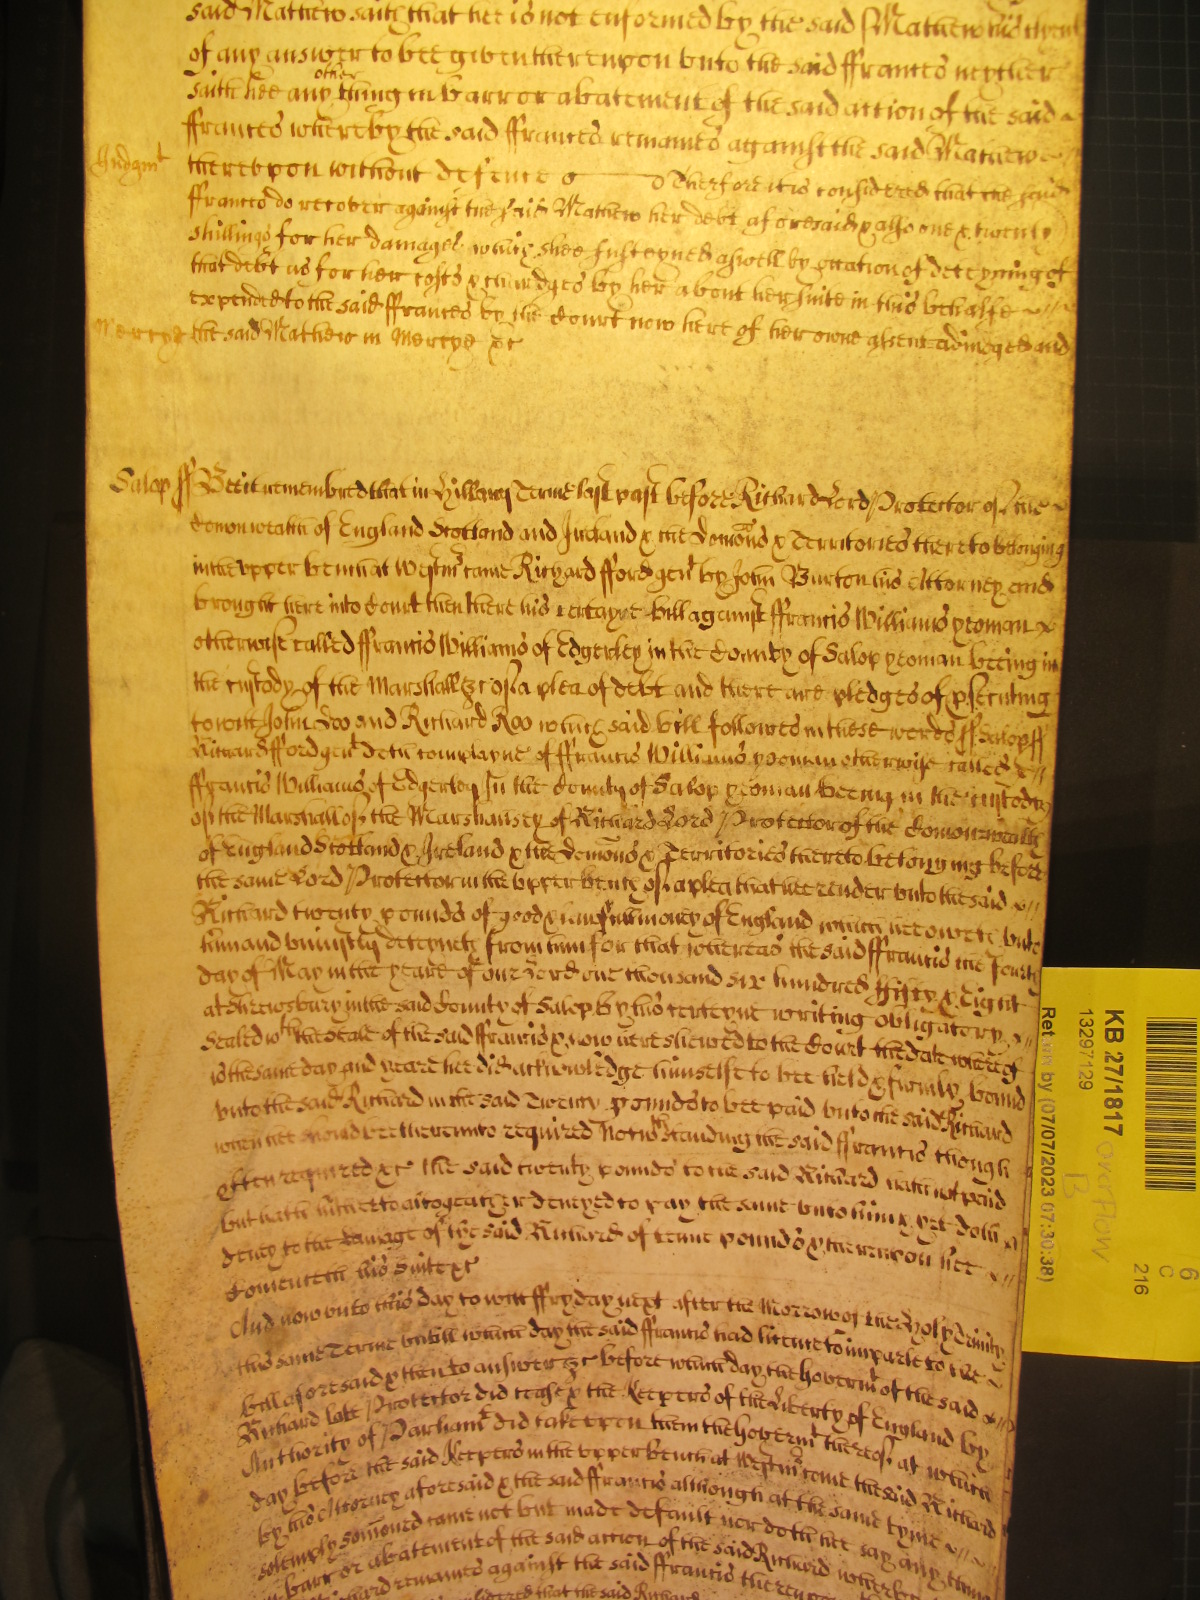 said Mathew saith that hee is not enformed by the said Mathew his
of any answer to bee given thereupon unto the said ffrances neyther
saith hee any other thing in barr or abatement of the said action of the said
ffrances whereby the said ffrances remaines against the said Mathewe
Judgmt
thereupon without defence Therfore it is considered that the said
ffrances do recover against the said Mathew her debt aforesaid & also one & twenty
shillings for her damages which shee susteyned aswell by occation of deteyning of
that debt as for her costs & chardges by her about her suite in this behalfe
expended to the said ffrances by the Court now here of her owne assent adiudged and
Mercye the said Mathew in Mercye &c
Salop ss Bee it remembred that in Hillary Terme last past before Richard Lord Protector of the
Comonwealth of England Scotland and Ireland & the Domons & Territories thereto belonging
in the upper bench at Westmr came Richard fford gent by John Burton his Attorney and
brought here into Court then there his certayne bill against ffrancis Williams yeoman
otherwise called ffrancis Williams of Edgerley in the County of Salop yeoman beeing in
the custody of the Marshall &c of a plea of debt and there are pledges of psecuting
to witt John Doo and Richard Roo which said bill followes in these words ss Salop ss
Richard fford gent doth complayne of ffrancis Williams yeoman otherwise called
ffrancis Williams of Edgerley In the County of Salop yeoman beeing in the custody
of the Marshall of the Marshalsey of Richard Lord Protector of the Comonwealth
of England Scotland & Ireland & the Domons & Territories thereto belonging before
the same Lord Protector in the upper bench of a plea that hee render unto the said
Richard twenty pounds of good & lawfull money of England which hee oweth unto
him and uniustly deteyneth from him for that whereas the said ffrancis the
day of May in the yeare of our Lord one thousand six hundred fifty & eight
at Shrewsbury in the said County of Salop by his certeyne writing obligatory
Sealed wth the seale of the said ffrancis & now here shewed to the Court the date whereof
is the same day and yeare hee did acknowledge himselfe to bee held & firmly bound
unto the said Richard in the said Twenty pounds to bee paid unto the said Richard
when hee should bee thereunto required Notwthstanding the said ffrancis though
often required &c the said twenty pounds to the said Richard hath not paid
but hath hitherto altogeather denyed to pay the same unto him & yet doth
deney to the damage of the said Richard of tenne pounds & thereupon hee
Comenceth his Suite &c
And now unto this day to witt ffryday next after the Morrow of the Holy Trinity
this same Terme untill which day the said ffrancis had licence to imparle to the
bill aforesaid & then to answer &c before which day the Governmt of the said
Richard late Protector did cease & the Keepers of the Liberty of England by
Authority of Parliamt did take upon them the Governmt thereof at which
day before the said Keepers in the upper bench at Westmr come the said Richard
by his Attorney aforesaid & the said ffrancis although at the same tyme
solemply somoned came not but made default nor doth hee say any thing
barr or abatement of the said action of the said Richard
remaines against the said ffrancis
that the said Richard
KB 27/1817
13297129
Return by (07/07/2023 07:30:38)
overflow
B
6
C
216